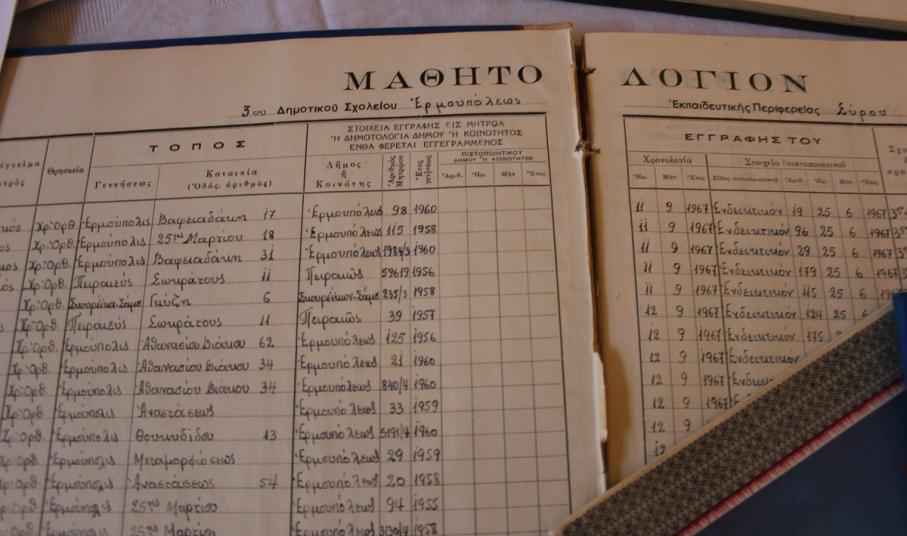 ΜΑΘΗΤΟ ΛΟΓΙΟΝ
3ου Δημοτικού Σχολείου Ἑρμουπόλεως Ἐκπαιδευτικής Περιφερείας Σύρου
ΤΟΠΟΣ ΣΤΟΙΧΕΙΑ ΕΓΓΡΑΦΗΣ ΕΙΣ ΜΗΤΡΩΑ ΕΓΓΡΑΦΗΣ ΤΟΥ
Ἤ ΔΗΜΟΤΟΛΟΓΙΑ ΔΗΜΟΥ Ἤ ΚΟΙΝΟΤΗΤΟΣ
ΕΝΘΑ ΦΕΡΕΤΑΙ ΕΓΓΕΓΡΑΜΜΕΝΟΣ
Θρησκεία Γεννήσεως Κατοικία Δήμος ΠΙΣΤΟΠΟΙΗΤΙΚΟΥ Χρονολογία Στοιχεία
(Ὁδός, ἀριθμός) ἤ ΔΗΜΟΥ Ἤ ΚΟΙΝΟΤΗΤΟΣ
Κοινότης Ἀριθ. Ἡμ. Μήν Ἔτος Ἡμ. Μήν Ἔτος Ἀριθ. Ἡμ. Μήν Ἔτος
Χρ.Ὀρθ. Ἑρμούπολις Βαφειαδάκη 17 Ἑρμουπόλεως 98 1960 11 9 1967 Ἐνδεικτικόν 19 25 6 1967
Χρ.Ὀρθ. Ἑρμούπολις 25ης Μαρτίου 18 Ἑρμουπόλεως 115 1958 11 9 1967 Ἐνδεικτικόν 96 25 6 1967
Χρ.Ὀρθ. Ἑρμούπολις Βαφειαδάκη 31 Ἑρμουπόλεως 1960 11 9 1967 Ἐνδεικτικόν 29 25 6 1967
Χρ.Ὀρθ. Πειραιεύς Σωκράτους 11 Πειραιῶς 59619 1956 11 9 1967 Ἐνδεικτικόν 179 25 6 1967
Χρ.Ὀρθ. Γκύζη 6 235/3 1958 11 9 1967 Ἐνδεικτικόν 115 25 6
Χρ.Ὀρθ. Πειραιεύς Σωκράτους 11 Πειραιῶς 39 1957 12 9 1967 Ἐνδεικτικόν 124 25 6
Χρ.Ὀρθ. Ἑρμούπολις Ἀθανασίου Διάκου 62 Ἑρμουπόλεως 125 1956 12 9 1967 Ἐνδεικτικόν 175
Χρ.Ὀρθ. Ἑρμούπολις Ἀθανασίου Διάκου 34 Ἑρμουπόλεως 21 1960 12 9 1967 Ἐνδεικτικόν
Χρ.Ὀρθ. Ἑρμούπολις Ἀθανασίου Διάκου 34 Ἑρμουπόλεως 840/4 1960 12 9 1967
Χρ.Ὀρθ. Ἑρμούπολις Ἀναστάσεως Ἑρμουπόλεως 33 1959 12 9 1967
Χρ.Ὀρθ. Ἑρμούπολις Θουκυδίδου 13 Ἑρμουπόλεως 1960 12 9
Ἑρμούπολις Μεταμορφώσεως Ἑρμουπόλεως 29 1959 12
Χρ.Ὀρθ. Ἑρμούπολις Ἀναστάσεως 54 Ἑρμουπόλεως 20 1958
Χρ.Ὀρθ. Ἑρμούπολις 25ης Μαρτίου Ἑρμουπόλεως 94 1955
Ἑρμούπολις 25ης Μαρτίου Ἑρμουπόλεως 1958